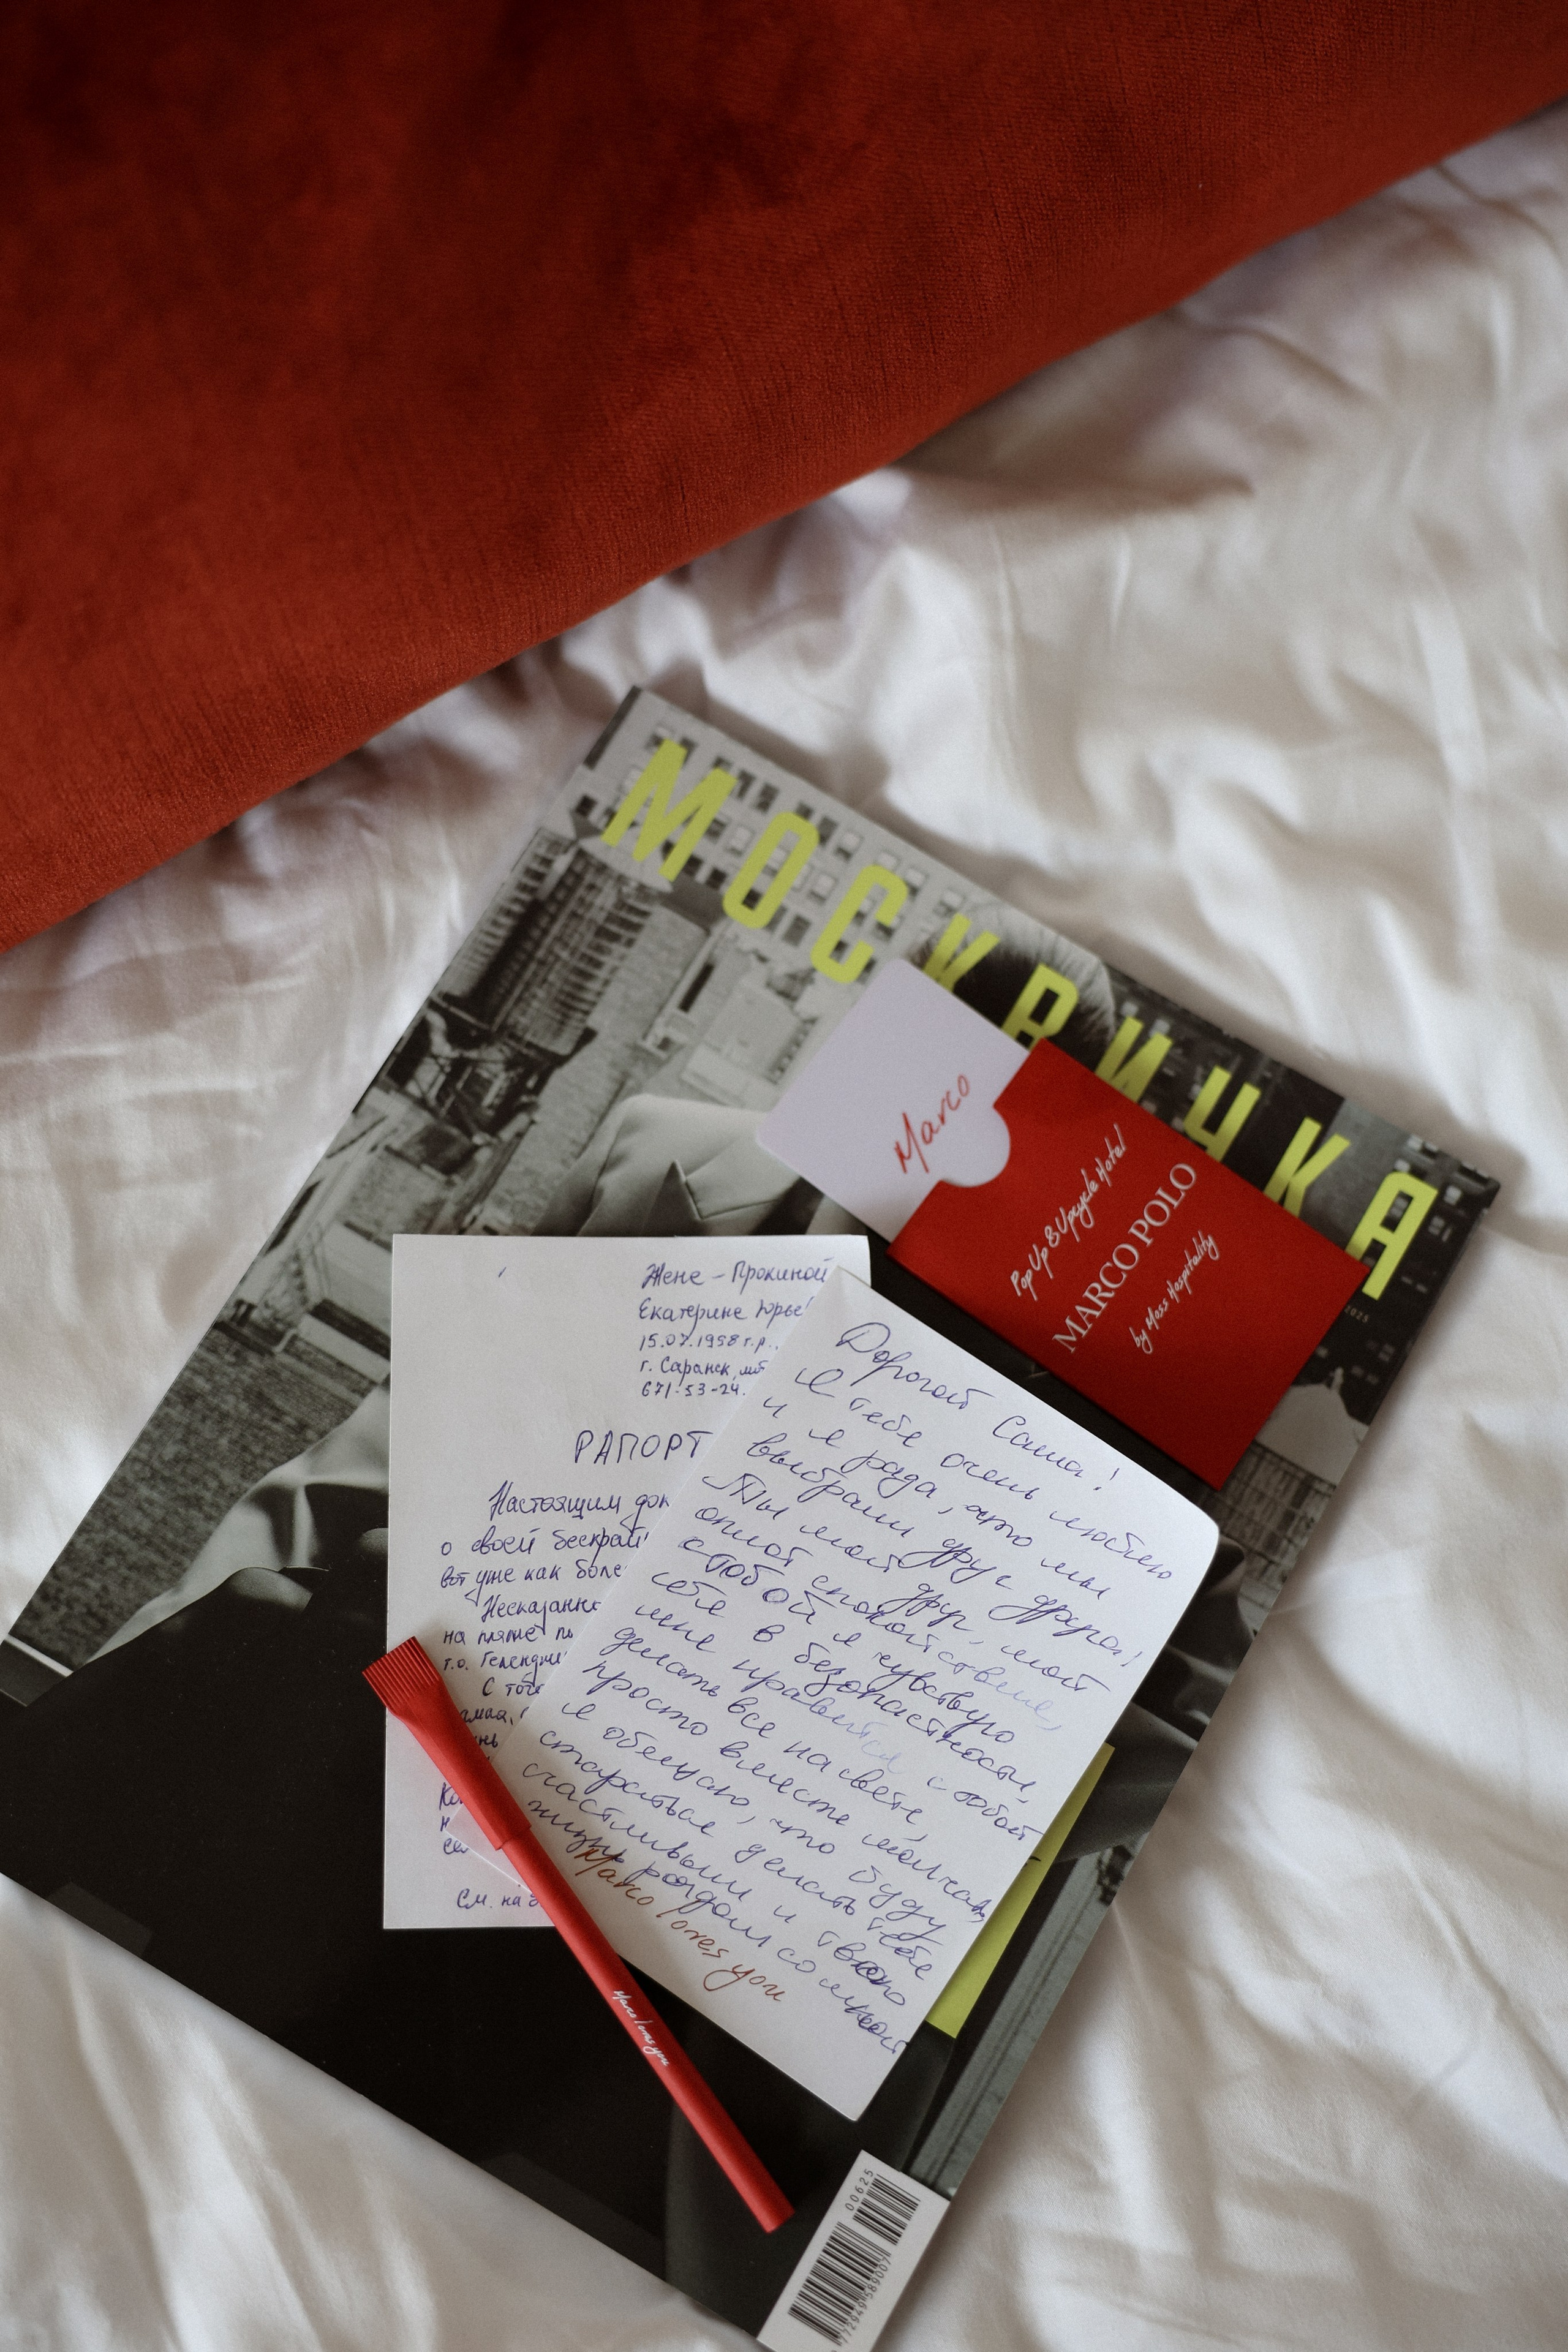 МОСКВИЧКА
2025
Marco
Pop Up & Upcycle Hotel
MARCO POLO
by Moss Hospitality
Жене – Прокиной
Екатерине Юрье
15.07.1998 г.р.,
г. Саранск,
671-53-24.
РАПОРТ
Настоящим док
о своей бескрай
вот уже как боле
Несказанно
на пляже
т.о. Геленджи
С того
См. на
Дорогой Саша!
Я тебя очень люблю
и я рада, что мы
выбрали друг друга!
Ты мой друг, мой
оплот спокойствия,
с тобой я чувствую
себя в безопасности,
мне нравится с тобой
делать все на свете,
просто вместе молчать,
я обещаю, что буду
стараться делать тебя
счастливым и твою
жизнь рядом со мной
Marco loves you
Marco loves you
00625